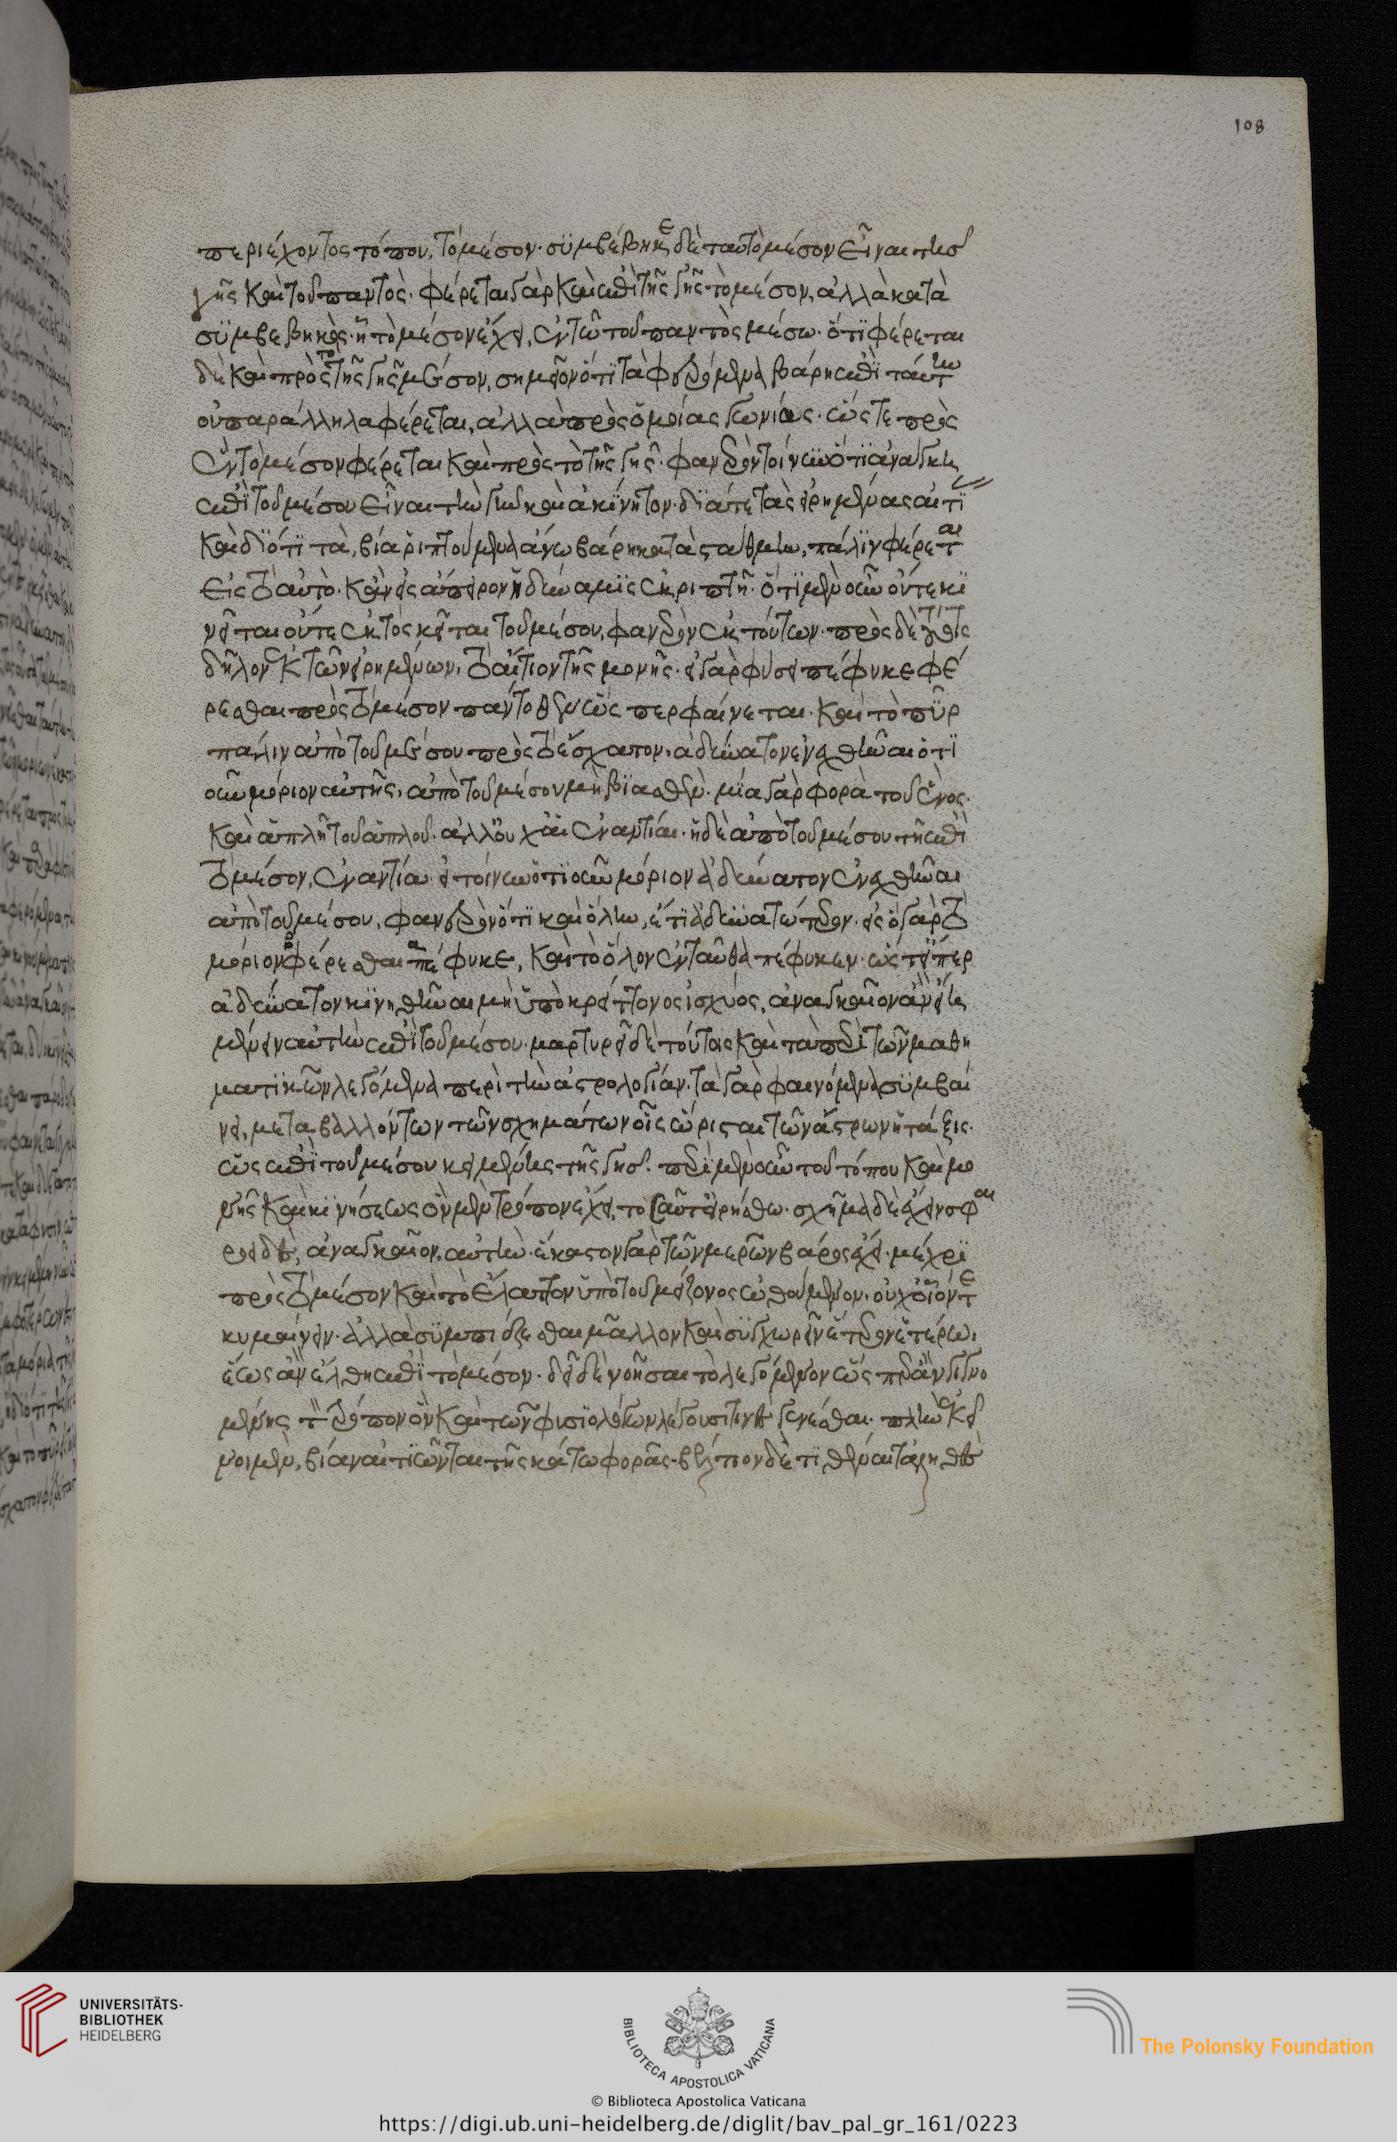 περιέχοντος τόπου, τὸ μέσον· συμβέβηκε δὲ ταυτὸ μέσον εἶναι τῆς
γῆς καὶ τοῦ παντὸς· φέρεται γὰρ καὶ ἐπὶ τῆς γῆς τὸ μέσον, ἀλλὰ κατὰ
συμβεβηκὸς· ἧ τὸ μέσον ἔχει, ἐν τῷ τοῦ παντὸς μέσω· ὅτι φέρεται
δὲ καὶ πρὸς τὸ τῆς γῆς μέσον, σημεῖον ὅτι τὰ φερόμενα βάρη ἐπὶ ταύτην
οὐ παράλληλα φέρεται, ἀλλὰ πρὸς ὁμοίας γωνίας· ὥστε πρὸς
ἓν τὸ μέσον φέρεται καὶ πρὸς τὸ τῆς γῆς· φανερὸν τοίνυν ὅτι ἀνάγκη
ἐπὶ τοῦ μέσου εἶναι τὴν γῆν καὶ ἀκίνητον· διά τε τὰς εἰρημένας αἰτίας
καὶ διότι τὰ, βία ῥιπτούμενα ἄνω βάρη κατὰ στάθμην, πάλιν φέρεται
εἰς τὸ αὐτὸ· κἂν εἰς ἄπειρον ἡ δύναμις ἐκριπτῆ· ὅτι μὲν οὖν οὔτε κι
νεῖται οὔτε ἐκτὸς κεῖται τοῦ μέσου, φανερὸν ἐκ τούτων· πρὸς δὲ τούτοις
δῆλον ἐκ τῶν εἰρημένων, τὸ αἴτιον τῆς μονῆς· εἰ γὰρ φύσει πέφυκε φέ
ρεσθαι πρὸς τὸ μέσον πάντοθεν ὥσπερ φαίνεται· καὶ τὸ πῦρ
πάλιν ἀπὸ τοῦ μέσου πρὸς τὸ ἔσχατον, ἀδύνατον ἐνεχθῆναι ὁτι
οῦν μόριον αὐτῆς, ἀπὸ τοῦ μέσου μὴ βιασθὲν· μία γὰρ φορὰ τοῦ ἑνὸς·
καὶ ἁπλῆ τοῦ ἁπλοῦ· ἀλλ' οὐχ αἱ ἐναντίαι· ἡ δὲ ἀπὸ τοῦ μέσου τῆ ἐπὶ
τὸ μέσον, ἐναντία· εἰ τοίνυν ὁτιοῦν μόριον ἀδύνατον ἐνεχθῆναι
ἀπὸ τοῦ μέσου, φανερὸν ὅτι καὶ ὅλην, ἔτι ἀδυνατώτερον· εἰς ὃ γὰρ τὸ
μόριον φέρεσθαι πέφυκε, καὶ τὸ ὅλον ἐνταῦθα πέφυκεν· ὥστ' εἴπερ
ἀδύνατον κινηθῆναι μὴ ὑπὸ κρείττονος ἰσχύος, ἀναγκαῖον ἂν εἴη
μένειν αὐτὴν ἐπὶ τοῦ μέσου· μαρτυρεῖ δὲ τούτοις καὶ τὰ περὶ τῶν μαθη
ματικῶν λεγόμενα περὶ τὴν ἀστρολογίαν· τὰ γὰρ φαινόμενα συμβαί
νει, μεταβαλλόντων τῶν σχημάτων οἷς ὥρισται τῶν ἄστρων ἡ τάξις·
ὡς ἐπὶ τοῦ μέσου κειμένης τῆς γῆς· περὶ μὲν οὖν τοῦ τόπου καὶ μο
νῆς καὶ κινήσεως ὃν μὲν τρόπον ἔχει, τοσαῦτ' εἰρήσθω· σχῆμα δὲ ἔχειν σφαι
ροειδὲς, ἀναγκαῖον, αὐτὴν· ἕκαστον γὰρ τῶν μερῶν βάρος ἔχει· μέχρι
πρὸς τὸ μέσον καὶ τὸ ἔλαττον ὑπὸ τοῦ μείζονος ὠθούμενον· οὐχ οἷόν τε
κυμαίνειν· ἀλλὰ συμπιέζεσθαι μᾶλλον καὶ συγχωρεῖν ἕτερον ἑτέρω,
ἕως ἂν ἔλθη ἐπὶ τὸ μέσον· δεῖ δὲ νοῆσαι τὸ λεγόμενον ὥσπερ ἂν γιγνο
μένης τὸν τρόπον ὃν καὶ τῶν φυσιολόγων λέγουσί τινες γενέσθαι· πλὴν ἐκεῖ
νοι μὲν, βίαν αἰτιῶνται τῆς κάτω φορᾶς· βέλτιον δὲ τιθέναι τἀληθὲς
108
UNIVERSITÄTS-
BIBLIOTHEK
HEIDELBERG
BIBLIOTECA APOSTOLICA VATICANA
The Polonsky Foundation
© Biblioteca Apostolica Vaticana
https://digi.ub.uni-heidelberg.de/diglit/bav_pal_gr_161/0223